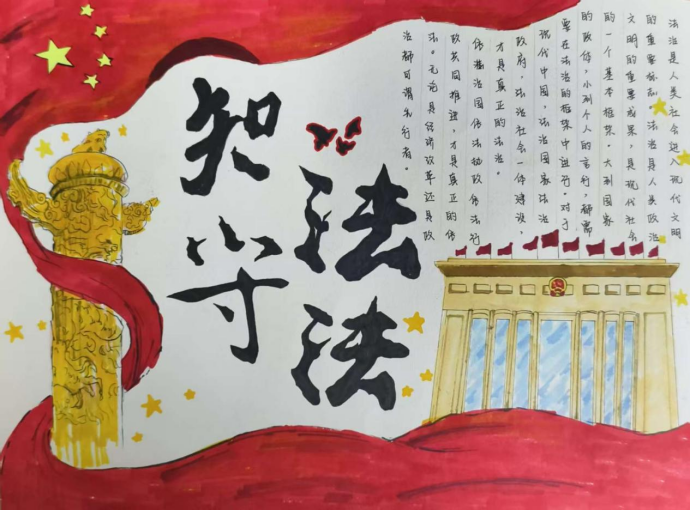 知法
守法
法治是人类社会迈入现代文明
的重要标志。法治是人类政治
文明的重要成果,是现代社会
的一个基本框架。大到国家
的政体,小到个人的言行,都需
要在法治的框架中运行。对于
现代中国,法治国家法治
政府,法治社会一体建设,
才是真正的法治。
依法治国依法执政依法行
政共同推进,才是真正的依
法。无论是经济改革还是政
治都可谓先行者。